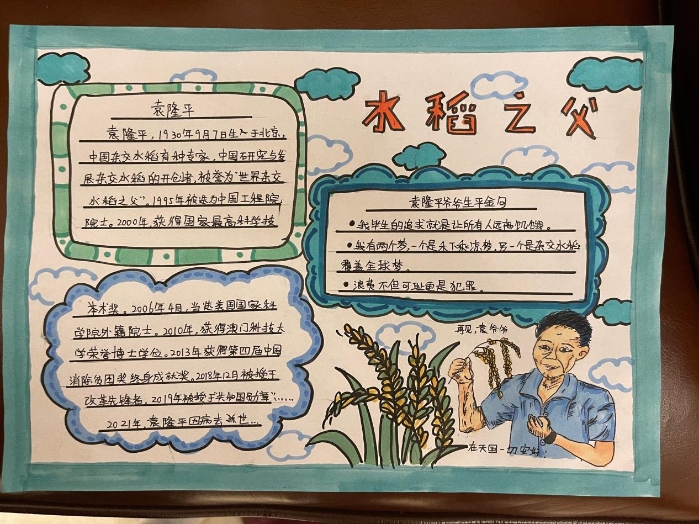 水稻之父
袁隆平
袁隆平，1930年9月7日生于北京，
中国杂交水稻育种专家，中国研究与发
展杂交水稻的开创者，被誉为“世界杂交
水稻之父”。1995年被选为中国工程院
院士。2000年，获得国家最高科学技
术奖。2006年4月，当选美国国家科
学院外籍院士。2010年，获得澳门科技大
学荣誉博士学位。2013年获得第四届中国
消除贫困奖终身成就奖。2018年12月被授予
改革先锋者。2019年被授予共和国勋章……
2021年，袁隆平因病去逝世…
袁隆平爷爷生平金句
●我毕生的追求就是让所有人远离饥饿。
●我有两个梦，一个是禾下乘凉梦，另一个是杂交水稻
覆盖全球梦。
●浪费不但可耻而是犯罪。
再见,袁爷爷
在天国一切安好